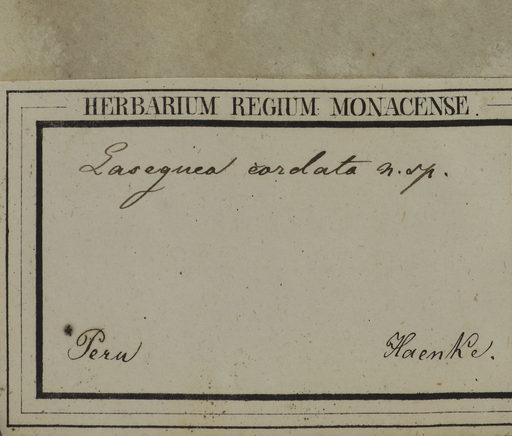 HERBARIUM REGIUM MONACENSE.
Lasegnea cordata n. sp.
Peru Haenke.